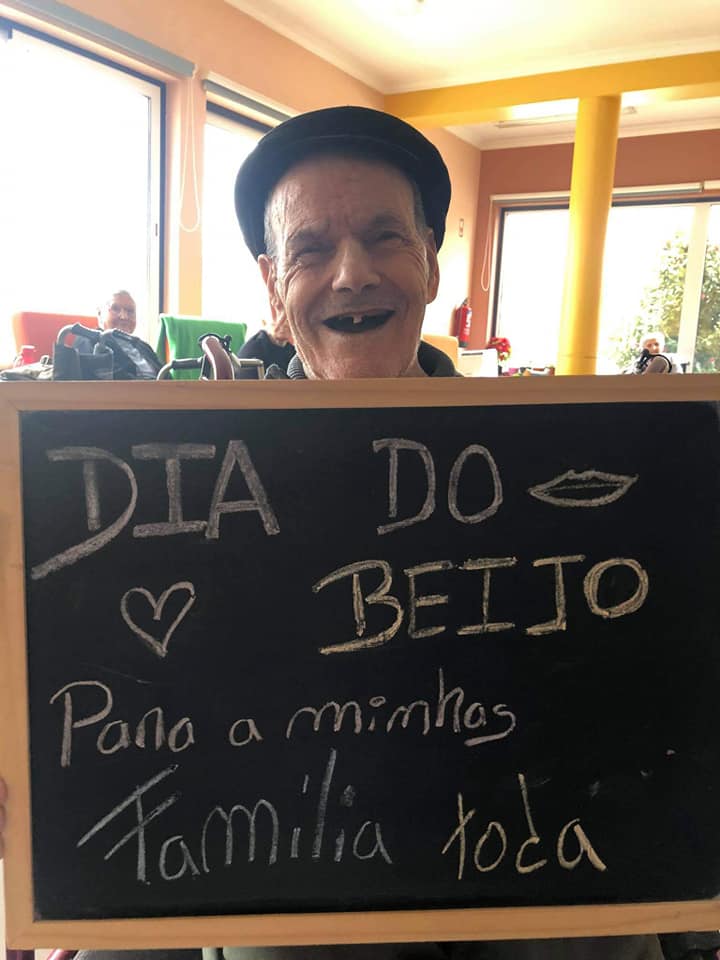 DIA DO
BEIJO
Para a minhas
Família toda